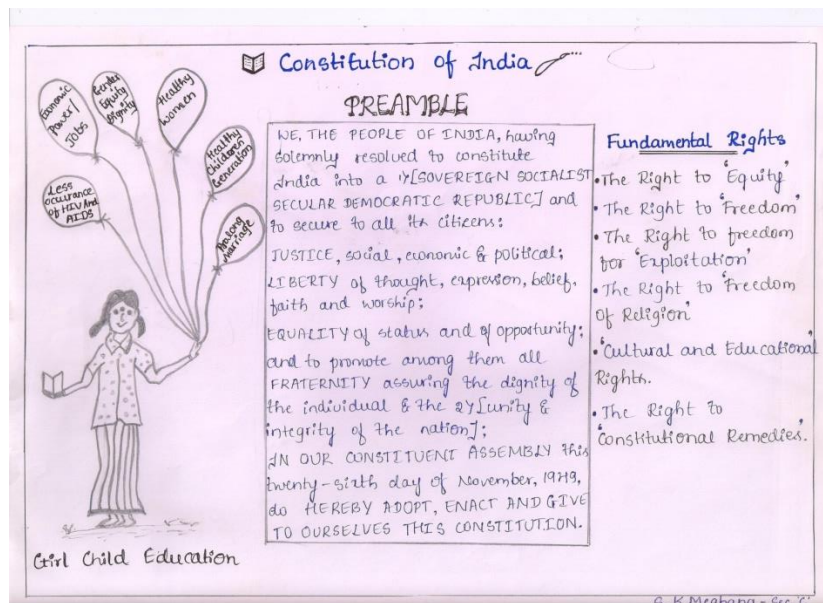 Constitution of India
PREAMBLE
Economic
Power/
Jobs
Gender
Equity
Dignity
Healthy
Women
Healthy
Children
Generation
Less
occurance
of HIV And
AIDS
Marriage
WE, THE PEOPLE OF INDIA, having
solemnly resolved to constitute
India into a 1>[SOVEREIGN SOCIALIST
SECULAR DEMOCRATIC REPUBLIC] and
to secure to all its citizens:
JUSTICE, social, economic & political;
LIBERTY of thought, expression, belief,
faith and worship;
EQUALITY of status and of opportunity;
and to promote among them all
FRATERNITY assuring the dignity of
the individual & the 2>[unity &
integrity of the nation];
IN OUR CONSTITUENT ASSEMBLY this
twenty-sixth day of November, 1949,
do HEREBY ADOPT, ENACT AND GIVE
TO OURSELVES THIS CONSTITUTION.
Fundamental Rights
• The Right to 'Equity'
• The Right to 'Freedom'
• The Right to freedom
for 'Exploitation'
• The Right to 'Freedom
of Religion'
• 'Cultural and Educational'
Rights.
• The Right to
'Constitutional Remedies'.
Girl Child Education
K Meghana - Sec 'C'